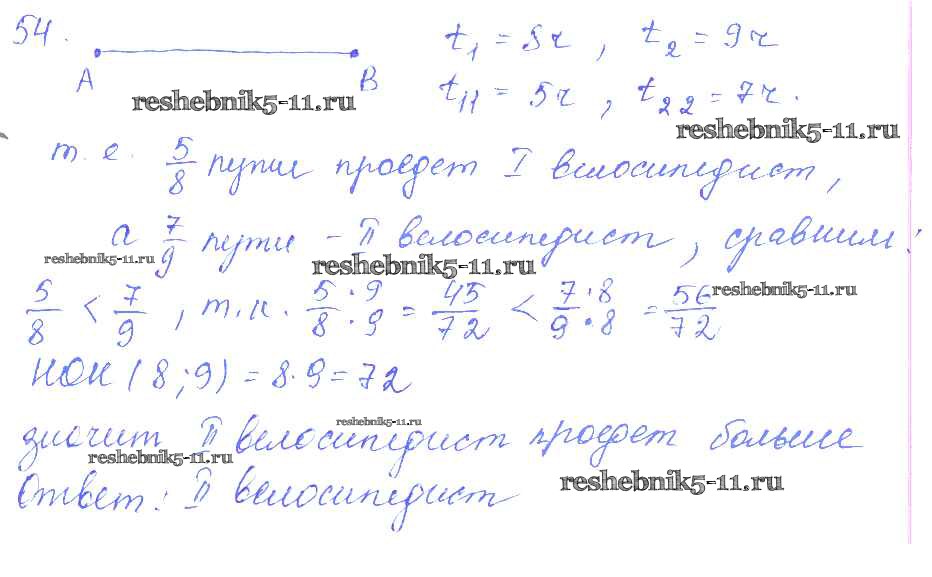 54.
t₁ = 8ч, t₂ = 9ч
A B
t₁₁ = 5ч, t₂₂ = 7ч.
reshebnik5-11.ru
reshebnik5-11.ru
т.е. 5/8 пути проедет I велосипедист,
а 7/9 пути – II велосипедист, сравним:
reshebnik5-11.ru
reshebnik5-11.ru
5/8 < 7/9, т.к. 5·9/8·9 = 45/72 < 7·8/9·8 = 56/72
reshebnik5-11.ru
НОК (8;9) = 8·9 = 72
reshebnik5-11.ru
значит II велосипедист проедет больше
reshebnik5-11.ru
Ответ: II велосипедист
reshebnik5-11.ru